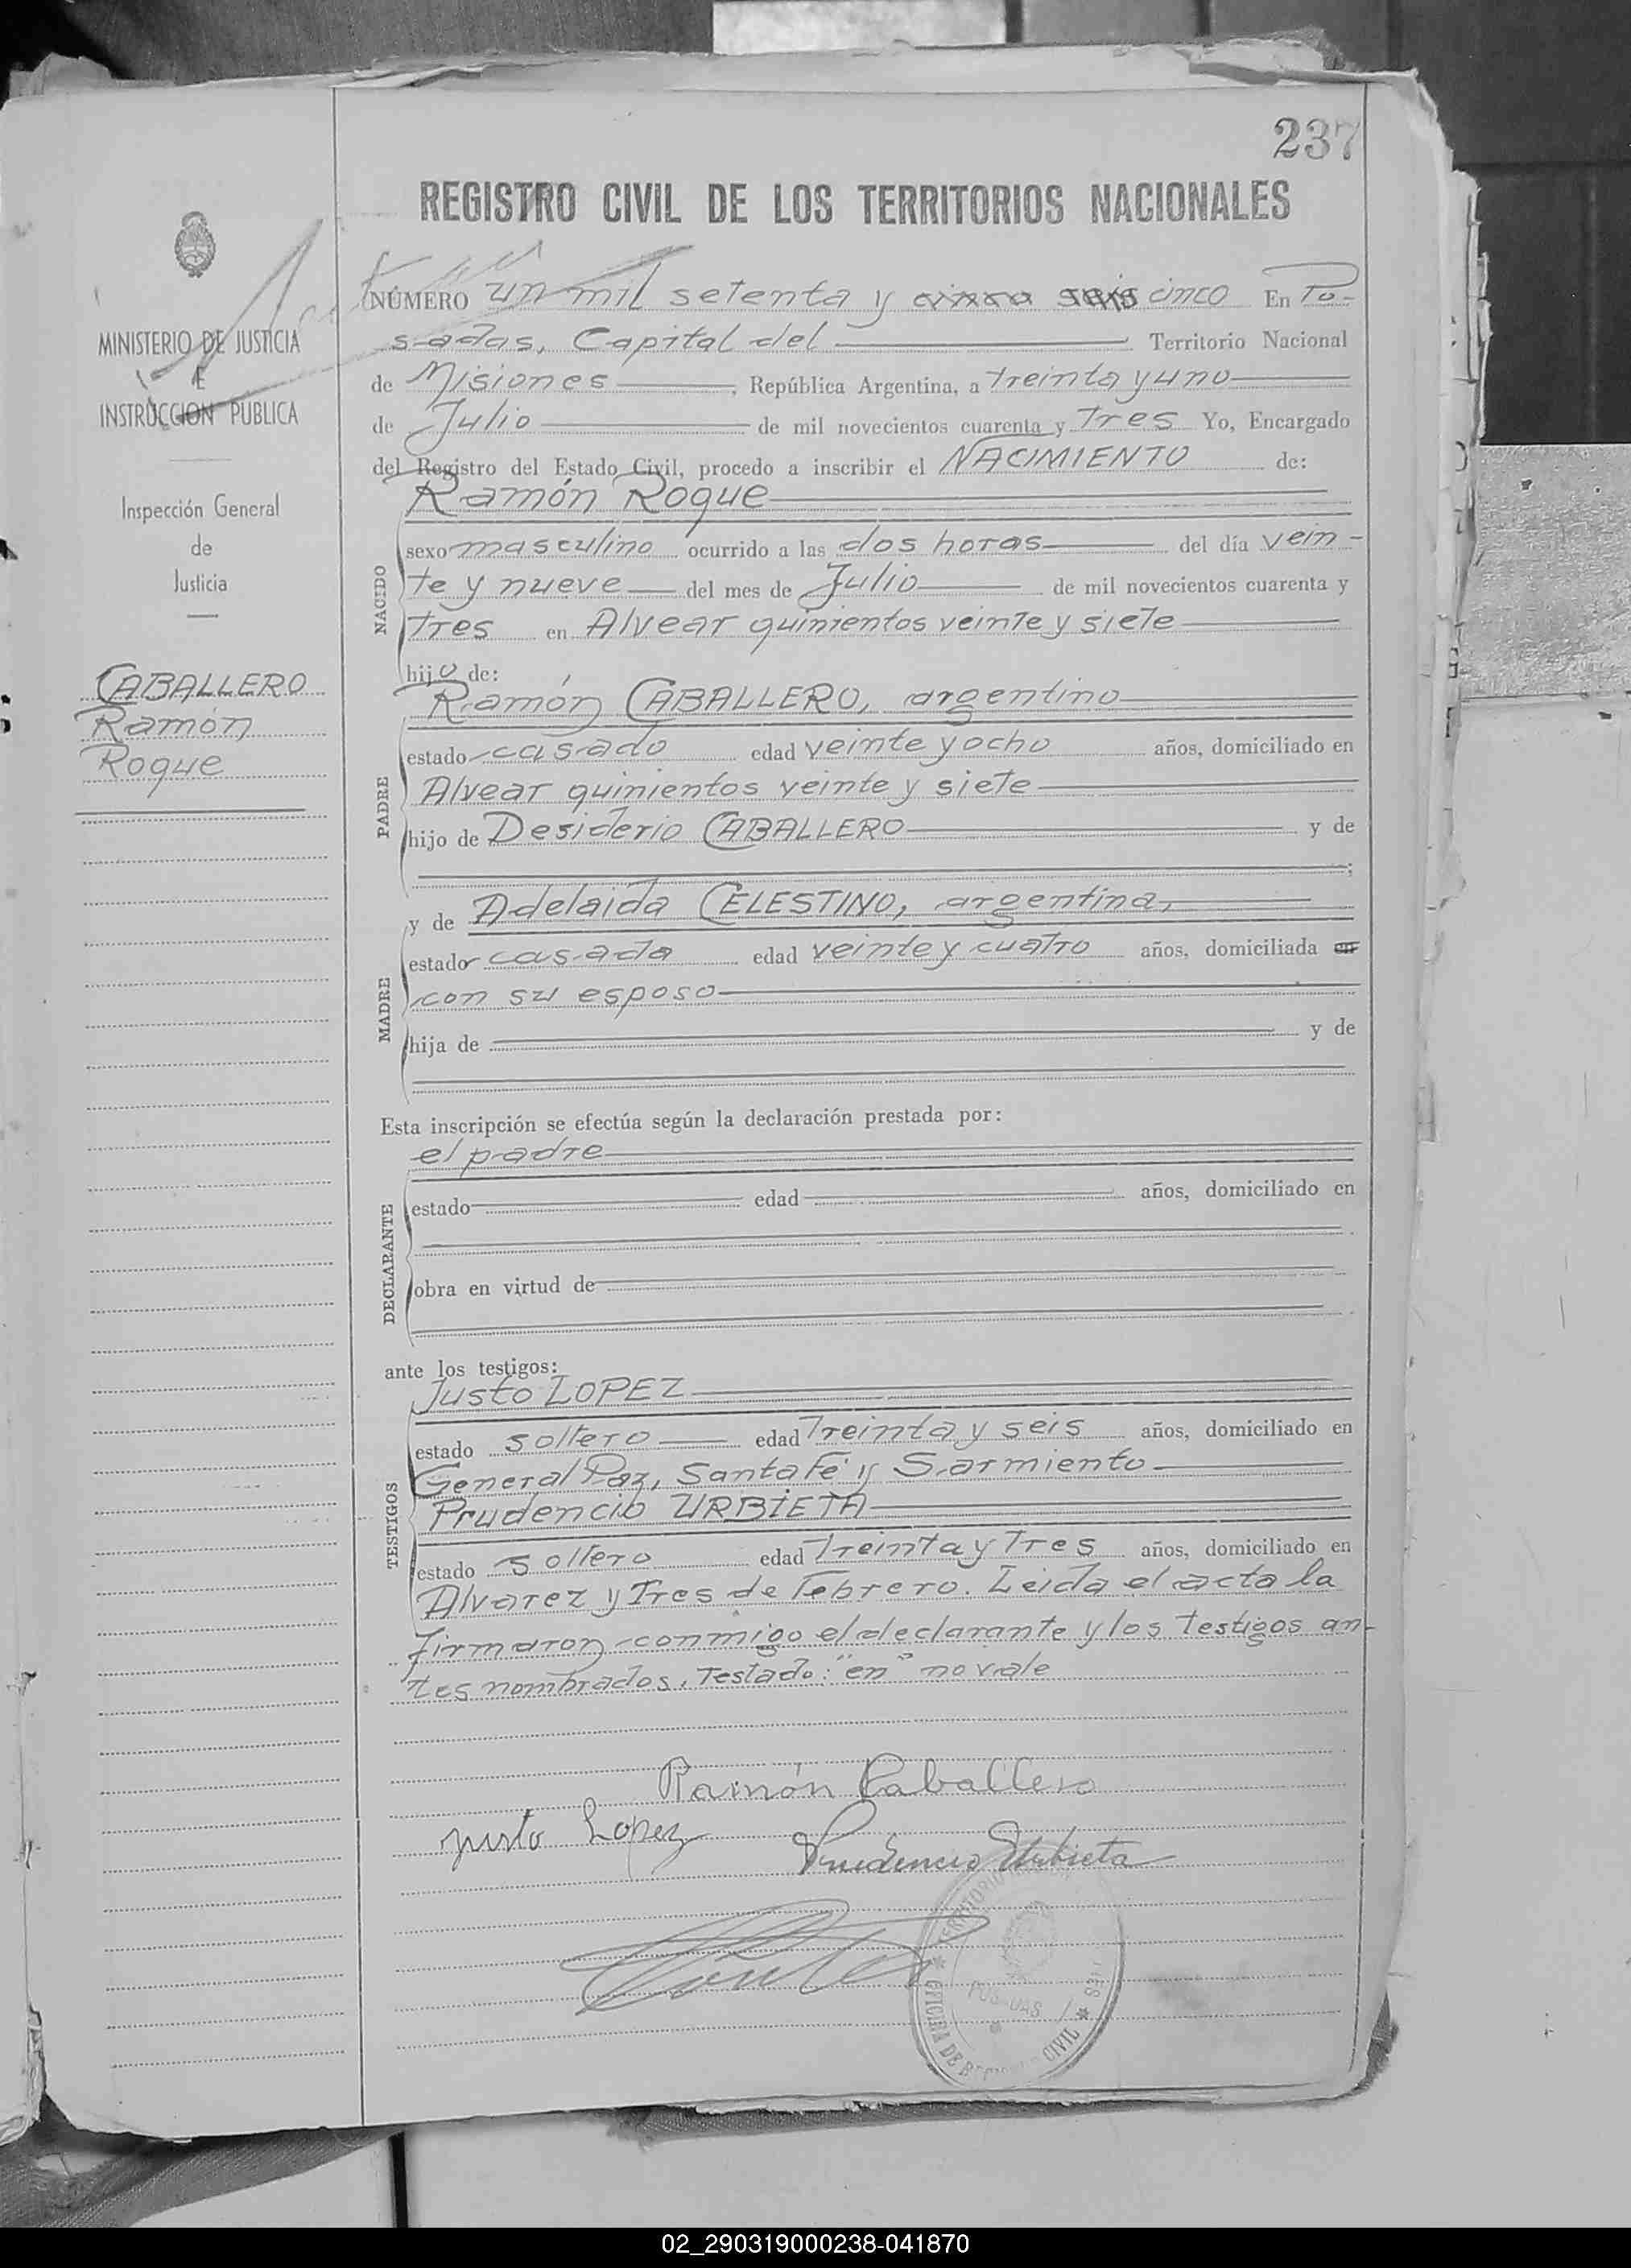 237
REGISTRO CIVIL DE LOS TERRITORIOS NACIONALES
MINISTERIO DE JUSTICIA
E
INSTRUCCION PUBLICA
Inspección General
de
Justicia
CABALLERO
Ramón
Roque
NÚMERO un mil setenta y cinco seis cinco En Po-
sadas, Capital del Territorio Nacional
de Misiones, República Argentina, a treinta y uno
de Julio de mil novecientos cuarenta y tres Yo, Encargado
del Registro del Estado Civil, procedo a inscribir el NACIMIENTO de:
NACIDO
Ramón Roque
sexo masculino ocurrido a las dos horas del día vein-
te y nueve del mes de Julio de mil novecientos cuarenta y
tres en Alvear quinientos veinte y siete
hijo de:
PADRE
Ramón CABALLERO, argentino
estado casado edad veinte y ocho años, domiciliado en
Alvear quinientos veinte y siete
hijo de Desiderio CABALLERO y de
MADRE
y de Adelaida CELESTINO, argentina,
estado casada edad veinte y cuatro años, domiciliada en
con su esposo
hija de y de
Esta inscripción se efectúa según la declaración prestada por:
DECLARANTE
el padre
estado edad años, domiciliado en
obra en virtud de
ante los testigos:
TESTIGOS
Justo LOPEZ
estado soltero edad Treinta y seis años, domiciliado en
General Paz, Santa Fé y Sarmiento
Prudencio URBIETA
estado soltero edad Treinta y Tres años, domiciliado en
Alvarez y Tres de Febrero. Leida el acta la
firmaron conmigo el declarante y los testigos an-
tes nombrados. Testado: "en" no vale
Ramón Caballero
Justo Lopez
Prudencio Urbieta
TERRITORIO
POSADAS
OFICINA DE CIVIL
02_290319000238-041870